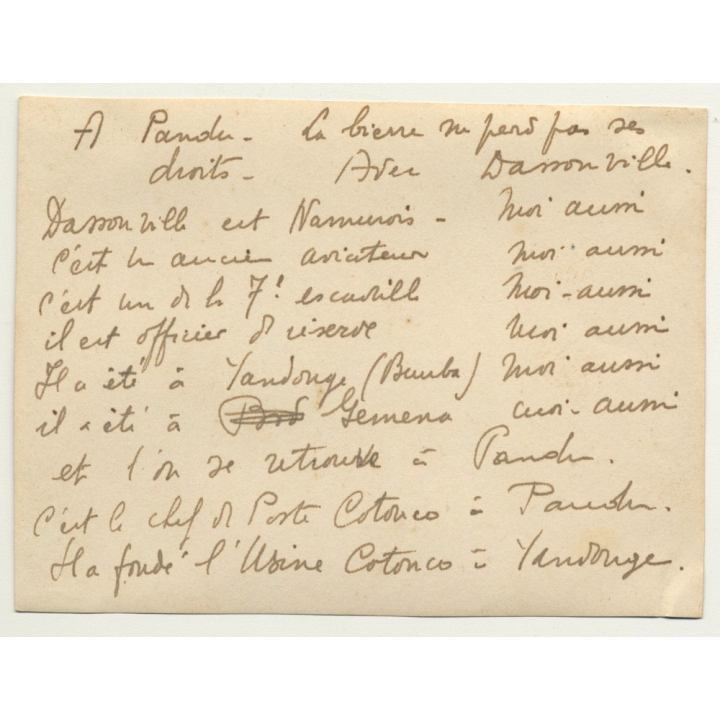 A Pandu - La bierre ne perd pas ses
droits - Avec Dassonville.
Dassonville est Namurois - Moi aussi
c'est un ancien aviateur moi aussi
c'est un de la 7e escadrille Moi-aussi
il est officier de réserve Moi aussi
Il a été à Yandonge (Bumba) Moi aussi
il a été à Gemena moi-aussi
et l'on se retrouve à Pandu.
c'est le chef de Poste Cotonco à Pandu.
Il a fondé l'Usine Cotonco à Yandonge.